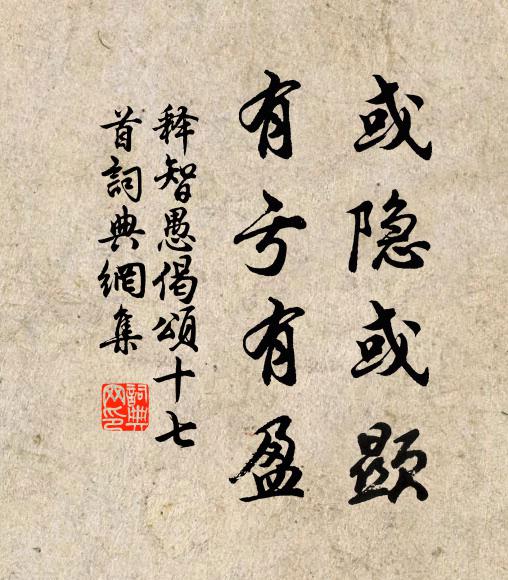 或隐或顕
有亏有盈
释智愚偈頌十七
首詞典網集
詞典
网印